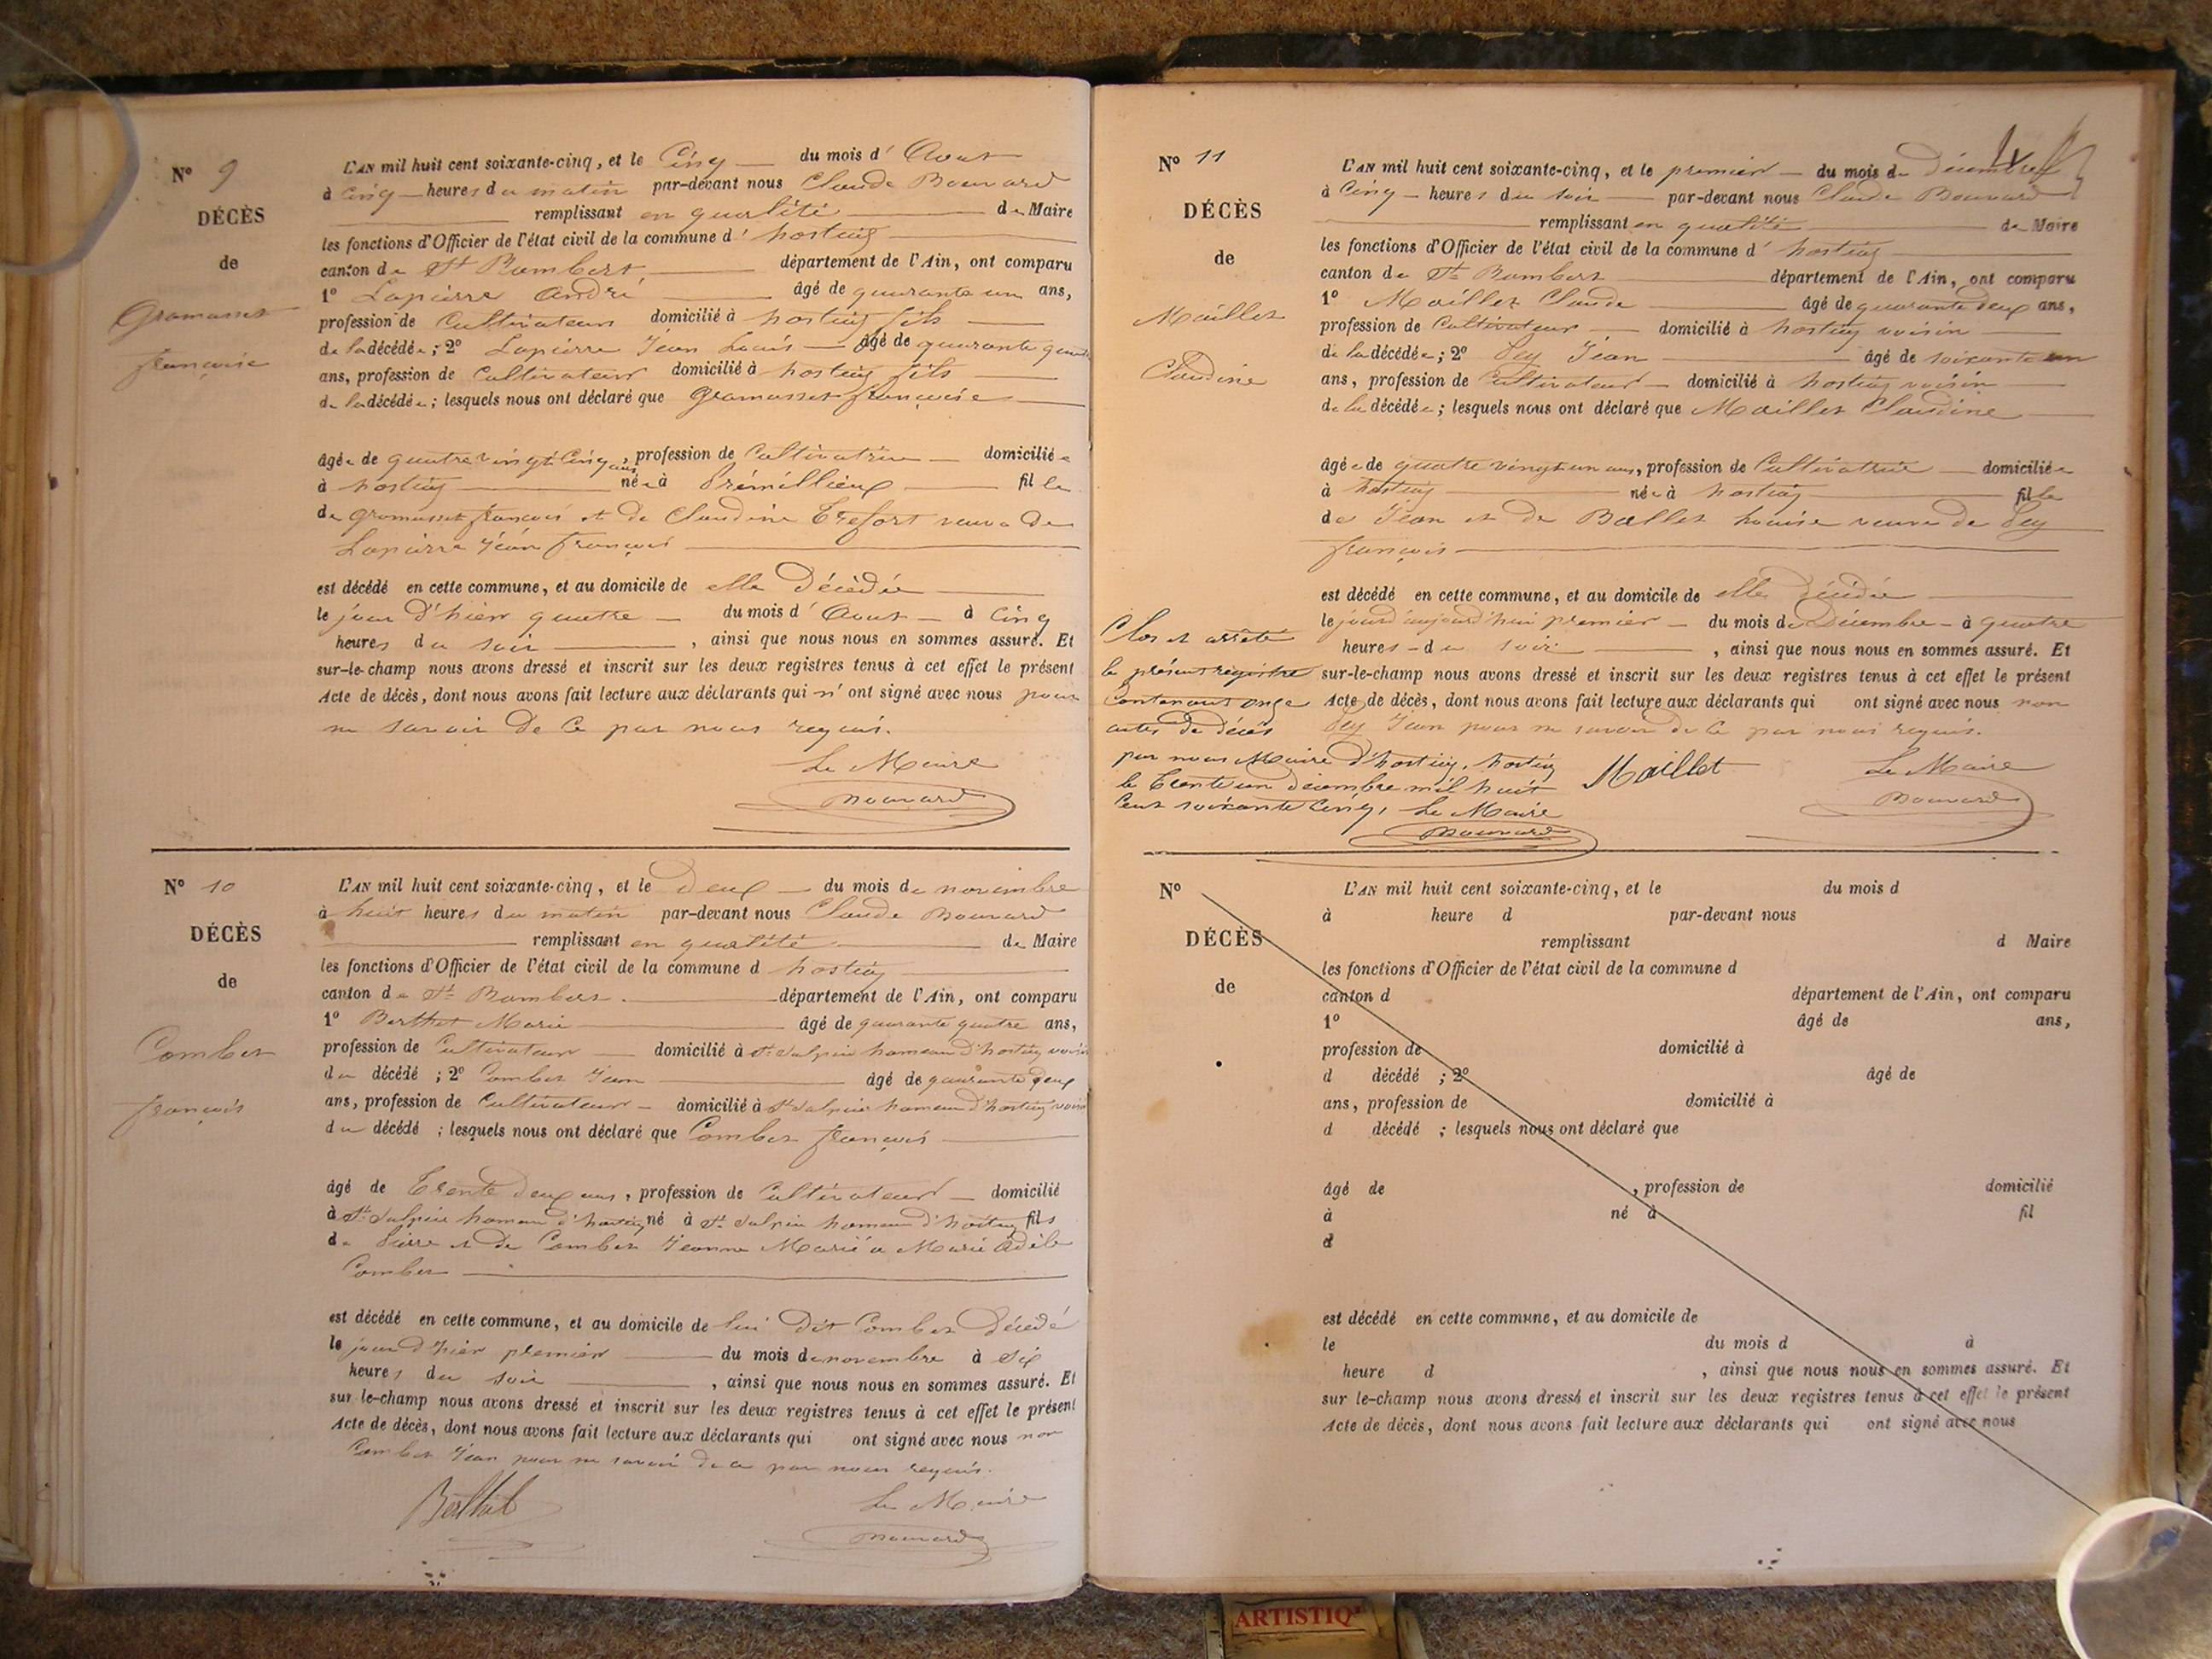 Nº 9
DÉCÈS
de
Gramusset
françoise
L'AN mil huit cent soixante-cinq, et le Cinq du mois d' Aout
à Cinq heures du matin par-devant nous Claude Bouvard
remplissant en qualité de Maire
les fonctions d'Officier de l'état civil de la commune d' hostiaz
canton de St Rambert département de l'Ain, ont comparu
1º Lapierre André âgé de quarante un ans,
profession de Cultivateur domicilié à hostiaz fils
de la décédée; 2º Lapierre Jean Louis âgé de quarante
ans, profession de Cultivateur domicilié à hostiaz fils
de la décédée; lesquels nous ont déclaré que Gramusset françoise
âgée de quatre vingt Cinq ans, profession de Cultivatrice domiciliée
à hostiaz née à Prémillieux fille
de Gramusset françois et de Claudine Trefort veuve de
Lapierre Jean françois
est décédé en cette commune, et au domicile de elle Décèdée
le jour d'hier quatre du mois d' Aout à Cinq
heures du soir, ainsi que nous nous en sommes assuré. Et
sur-le-champ nous avons dressé et inscrit sur les deux registres tenus à cet effet le présent
Acte de décès, dont nous avons fait lecture aux déclarants qui n'ont signé avec nous pour
ne savoir De Ce par nous requis.
Le Maire
Bouvard
Nº 10
DÉCÈS
de
Combet
françois
L'AN mil huit cent soixante-cinq, et le Deux du mois de novembre
à huit heures du matin par-devant nous Claude Bouvard
remplissant en qualité de Maire
les fonctions d'Officier de l'état civil de la commune d hostiaz
canton de St Rambert département de l'Ain, ont comparu
1º Berthet Marie âgé de quarante quatre ans,
profession de Cultivateur domicilié à St Sulpice hameau d'hostiaz voisin
du décédé ; 2º Combet Jean âgé de quarante deux
ans, profession de Cultivateur domicilié à St Sulpice hameau d'hostiaz voisin
du décédé ; lesquels nous ont déclaré que Combet françois
âgé de Trente deux ans, profession de Cultivateur domicilié
à St Sulpice hameau d'hostiaz né à St Sulpice hameau d'hostiaz fils
de Pierre et de Combet Jeanne Marié a Marie Adèle
Combet
est décédé en cette commune, et au domicile de lui Dit Combet Décédé
le jour d'hier premier du mois de novembre à Six
heures du soir, ainsi que nous nous en sommes assuré. Et
sur le-champ nous avons dressé et inscrit sur les deux registres tenus à cet effet le présent
Acte de décès, dont nous avons fait lecture aux déclarants qui ont signé avec nous non
Combet Jean pour ne savoir de ce par nous requis.
Berthet
Le Maire
Bouvard
Nº 11
DÉCÈS
de
Maillet
Claudine
L'AN mil huit cent soixante-cinq, et le premier du mois de Décembre
à Cinq heures du soir par-devant nous Claude Bouvard
remplissant en qualité de Maire
les fonctions d'Officier de l'état civil de la commune d' hostiaz
canton de St Rambert département de l'Ain, ont comparu
1º Maillet Claude âgé de quarante deux ans,
profession de Cultivateur domicilié à hostiaz voisin
de la décédée; 2º Jean âgé de soixante un
ans, profession de Cultivateur domicilié à hostiaz voisin
de la décédée; lesquels nous ont déclaré que Maillet Claudine
âgée de quatre vingt un ans, profession de Cultivatrice domiciliée
à hostiaz née à hostiaz fille
de Jean et de Ballet Louise veuve de
françois
est décédé en cette commune, et au domicile de elle Décédée
le jour d'aujourd'hui premier du mois de Décembre à quatre
heures du soir, ainsi que nous nous en sommes assuré. Et
sur-le-champ nous avons dressé et inscrit sur les deux registres tenus à cet effet le présent
Acte de décès, dont nous avons fait lecture aux déclarants qui ont signé avec nous non
Jean pour ne savoir de Ce par nous requis.
Maillet
Le Maire
Bouvard
Clos et arrêté
le présent registre
Contenant onze
actes de décès
par nous Maire d'hostiaz. hostiaz
le Trente un décembre mil huit
Cent soixante Cinq, Le Maire
Bouvard
Nº
DÉCÈS
de
L'AN mil huit cent soixante-cinq, et le du mois d
à heure d par-devant nous
remplissant d Maire
les fonctions d'Officier de l'état civil de la commune d
canton d département de l'Ain, ont comparu
1º âgé de ans,
profession de domicilié à
d décédé ; 2º âgé de
ans, profession de domicilié à
d décédé ; lesquels nous ont déclaré que
âgé de , profession de domicilié
à né à fil
d
est décédé en cette commune, et au domicile de
le du mois d à
heure d , ainsi que nous nous en sommes assuré. Et
sur le-champ nous avons dressé et inscrit sur les deux registres tenus à cet effet le présent
Acte de décès, dont nous avons fait lecture aux déclarants qui ont signé avec nous
ARTISTIQ